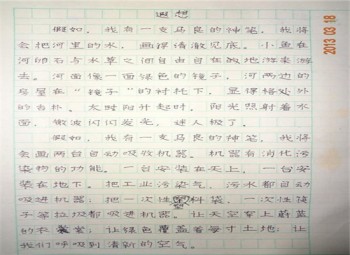 遐想
假如，我有一支马良的神笔，我将
会把河里的水，画得清澈见底。小鱼在
河卵石与水草之间自由自在的地游来游
去。河面像一面绿色的镜子，河两边的
房屋在“镜子”的衬托下，显得格外
的古朴。太阳刚升起时，阳光照射着水
面，微波闪闪发光，迷人极了。
假如，我有一支马良的神笔，我将
会画两台自动吸收机器。机器有消化污
染物的功能。一台安装在天上，一台安
装在地下。把工业污染气、污水都自动
吸进机器；把一次性塑料袋、一次性筷
子等垃圾都吸进机器。让天空穿上蔚蓝
的衣裳；让绿色覆盖着每寸土地；让
我们呼吸到清新的空气。
2013 03 18